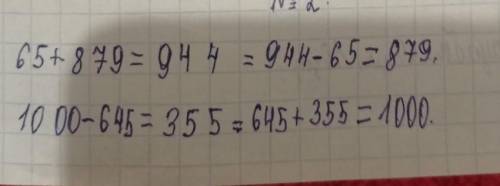 № 2.
65+879=944 =944-65=879.
1000-645=355=645+355=1000.